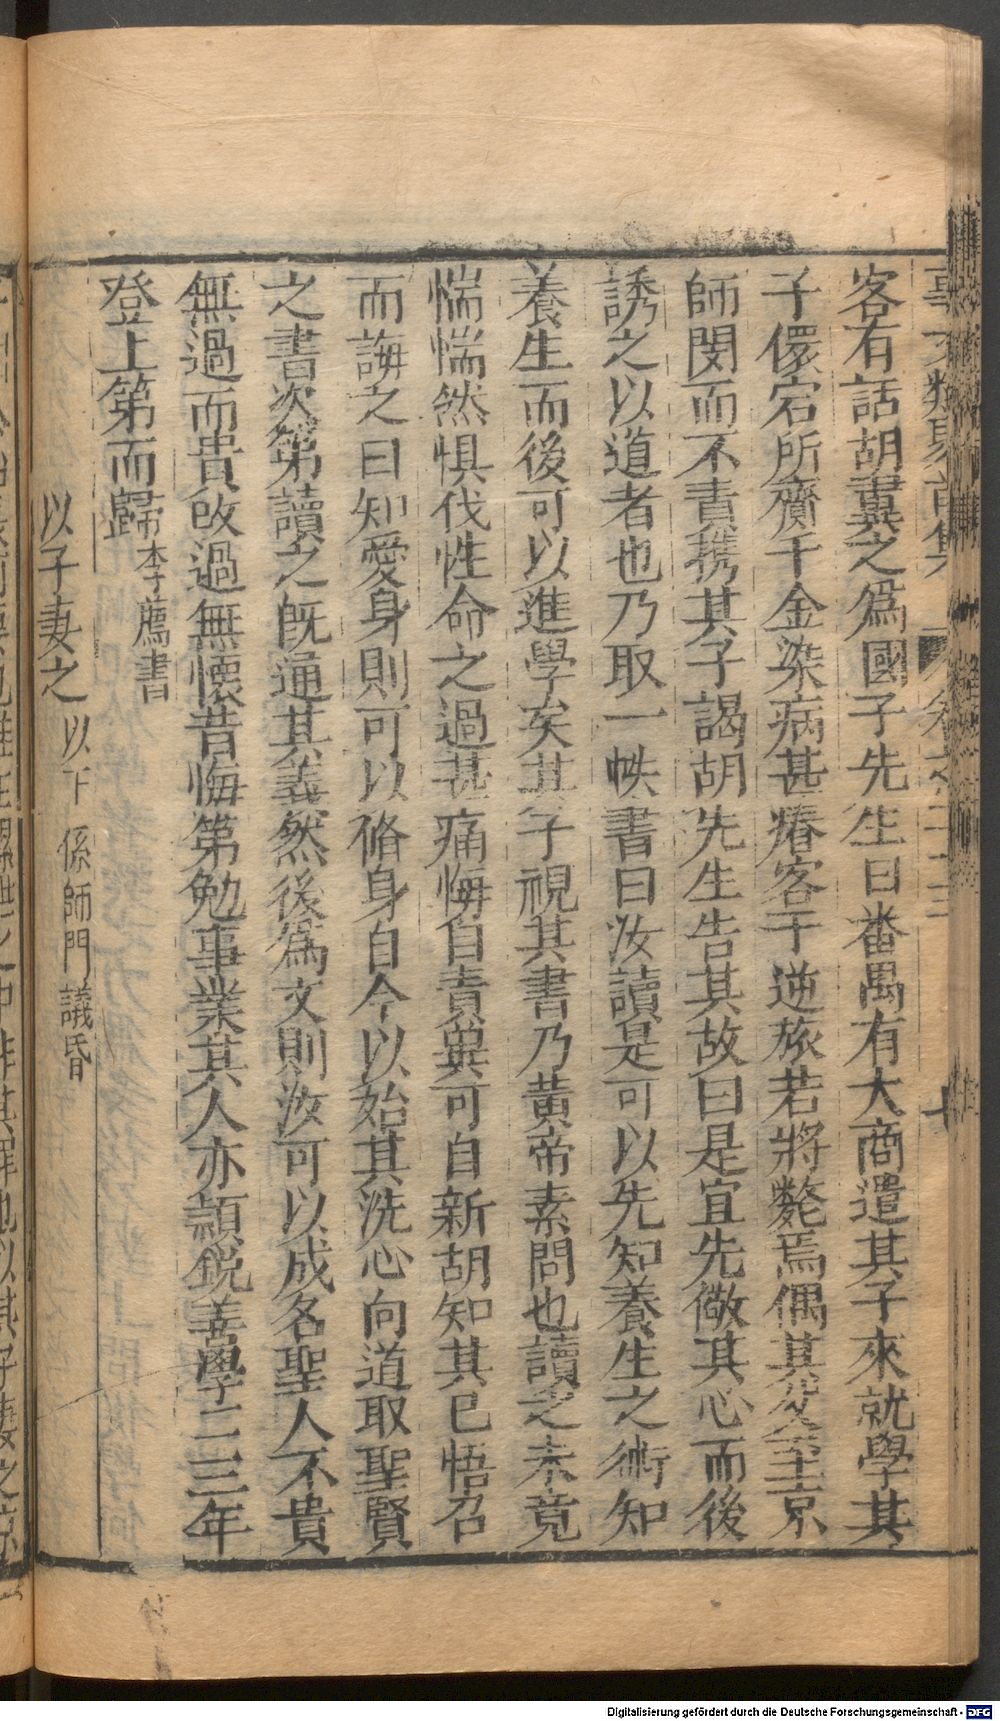 客有話胡翼之爲國子先生日番禺有大商遣其子來就學其
子儇宕所齎千金染病甚瘠客于逆旅若將斃焉偶其父至京
師閔而不責携其子謁胡先生告其故曰是宜先儆其心而後
誘之以道者也乃取一帙書曰汝讀是可以先知養生之術知
養生而後可以進學矣其子視其書乃黃帝素問也讀之未竟
惴惴然惧伐性命之過甚痛悔自責冀可自新胡知其已悟召
而誨之曰知愛身則可以脩身自今以始其洗心向道取聖賢
之書次第讀之既通其義然後爲文則汝可以成名聖人不貴
無過而貴改過無懷昔悔第勉事業其人亦頴鋭善學二三年
登上第而歸李廌書
以子妻之 以下係師門議昏
Digitalisierung gefördert durch die Deutsche Forschungsgemeinschaft - DFG